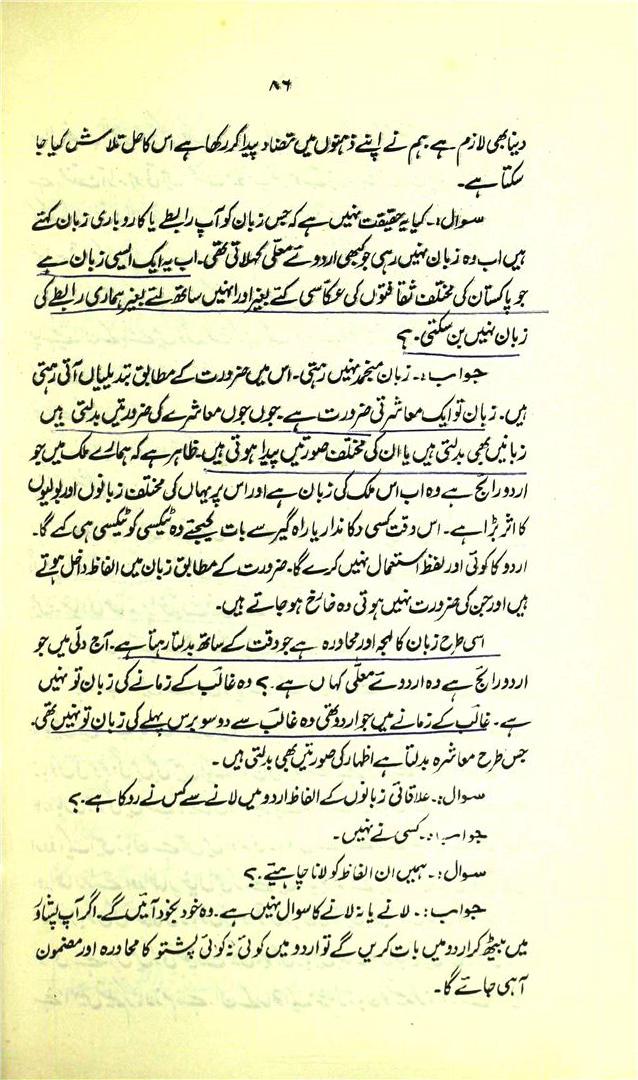 ۸۶
دینا بھی لازم ہے ہم نے اپنے ذہنوں میں تضاد پیدا کر رکھا ہے اس کا حل تلاش کیا جا
سکتا ہے۔
سوال:۔ کیا یہ حقیقت نہیں ہے کہ جس زبان کو آپ رابطے یا کاروباری زبان کہتے
ہیں اب وہ زبان نہیں رہی جو کبھی اردوئے معلی کہلاتی تھی۔ اب یہ ایک ایسی زبان ہے
جو پاکستان کی مختلف ثقافتوں کی عکاسی کئے بغیر اور انہیں ساتھ لئے بغیر ہماری رابطے کی
زبان نہیں بن سکتی۔ ؟
جواب:۔ زبان منجمد نہیں رہتی۔ اس میں ضرورت کے مطابق تبدیلیاں آتی رہتی
ہیں۔ زبان تو ایک معاشرتی ضرورت ہے۔ جوں جوں معاشرے کی ضرورتیں بدلتی ہیں
زبانیں بھی بدلتی ہیں یا ان کی مختلف صورتیں پیدا ہوتی ہیں۔ ظاہر ہے کہ ہمارے ملک میں جو
اردو رائج ہے وہ اب اس ملک کی زبان ہے اور اس پر یہاں کی مختلف زبانوں اور بولیوں
کا اثر پڑا ہے۔ اس وقت کسی دکاندار یا راہ گیر سے بات کیجئے وہ ٹیکسی کو ٹیکسی ہی کہے گا۔
اردو کا کوئی اور لفظ استعمال نہیں کرے گا۔ ضرورت کے مطابق زبان میں الفاظ داخل ہوتے
ہیں اور جن کی ضرورت نہیں ہوتی وہ خارج ہو جاتے ہیں۔
اسی طرح زبان کا لہجہ اور محاورہ ہے جو وقت کے ساتھ بدلتا رہتا ہے۔ آج دلی میں جو
اردو رائج ہے وہ اردوئے معلی کہاں ہے۔ ؟ وہ غالب کے زمانے کی زبان تو نہیں
ہے۔ غالب کے زمانے میں جو اردو تھی وہ غالب سے دو سو برس پہلے کی زبان تو نہیں تھی۔
جس طرح معاشرہ بدلتا ہے اظہار کی صورتیں بھی بدلتی ہیں۔
سوال:۔ علاقائی زبانوں کے الفاظ اردو میں لانے سے کس نے روکا ہے۔ ؟
جواب:۔ کسی نے نہیں۔
سوال:۔ ہمیں ان الفاظ کو لانا چاہیئے۔ ؟
جواب:۔ لانے یا نہ لانے کا سوال نہیں ہے۔ وہ خود بخود آئیں گے۔ اگر آپ پشاور
میں بیٹھ کر اردو میں بات کریں گے تو اردو میں کوئی نہ کوئی پشتو کا محاورہ اور مضمون
آ ہی جائے گا۔